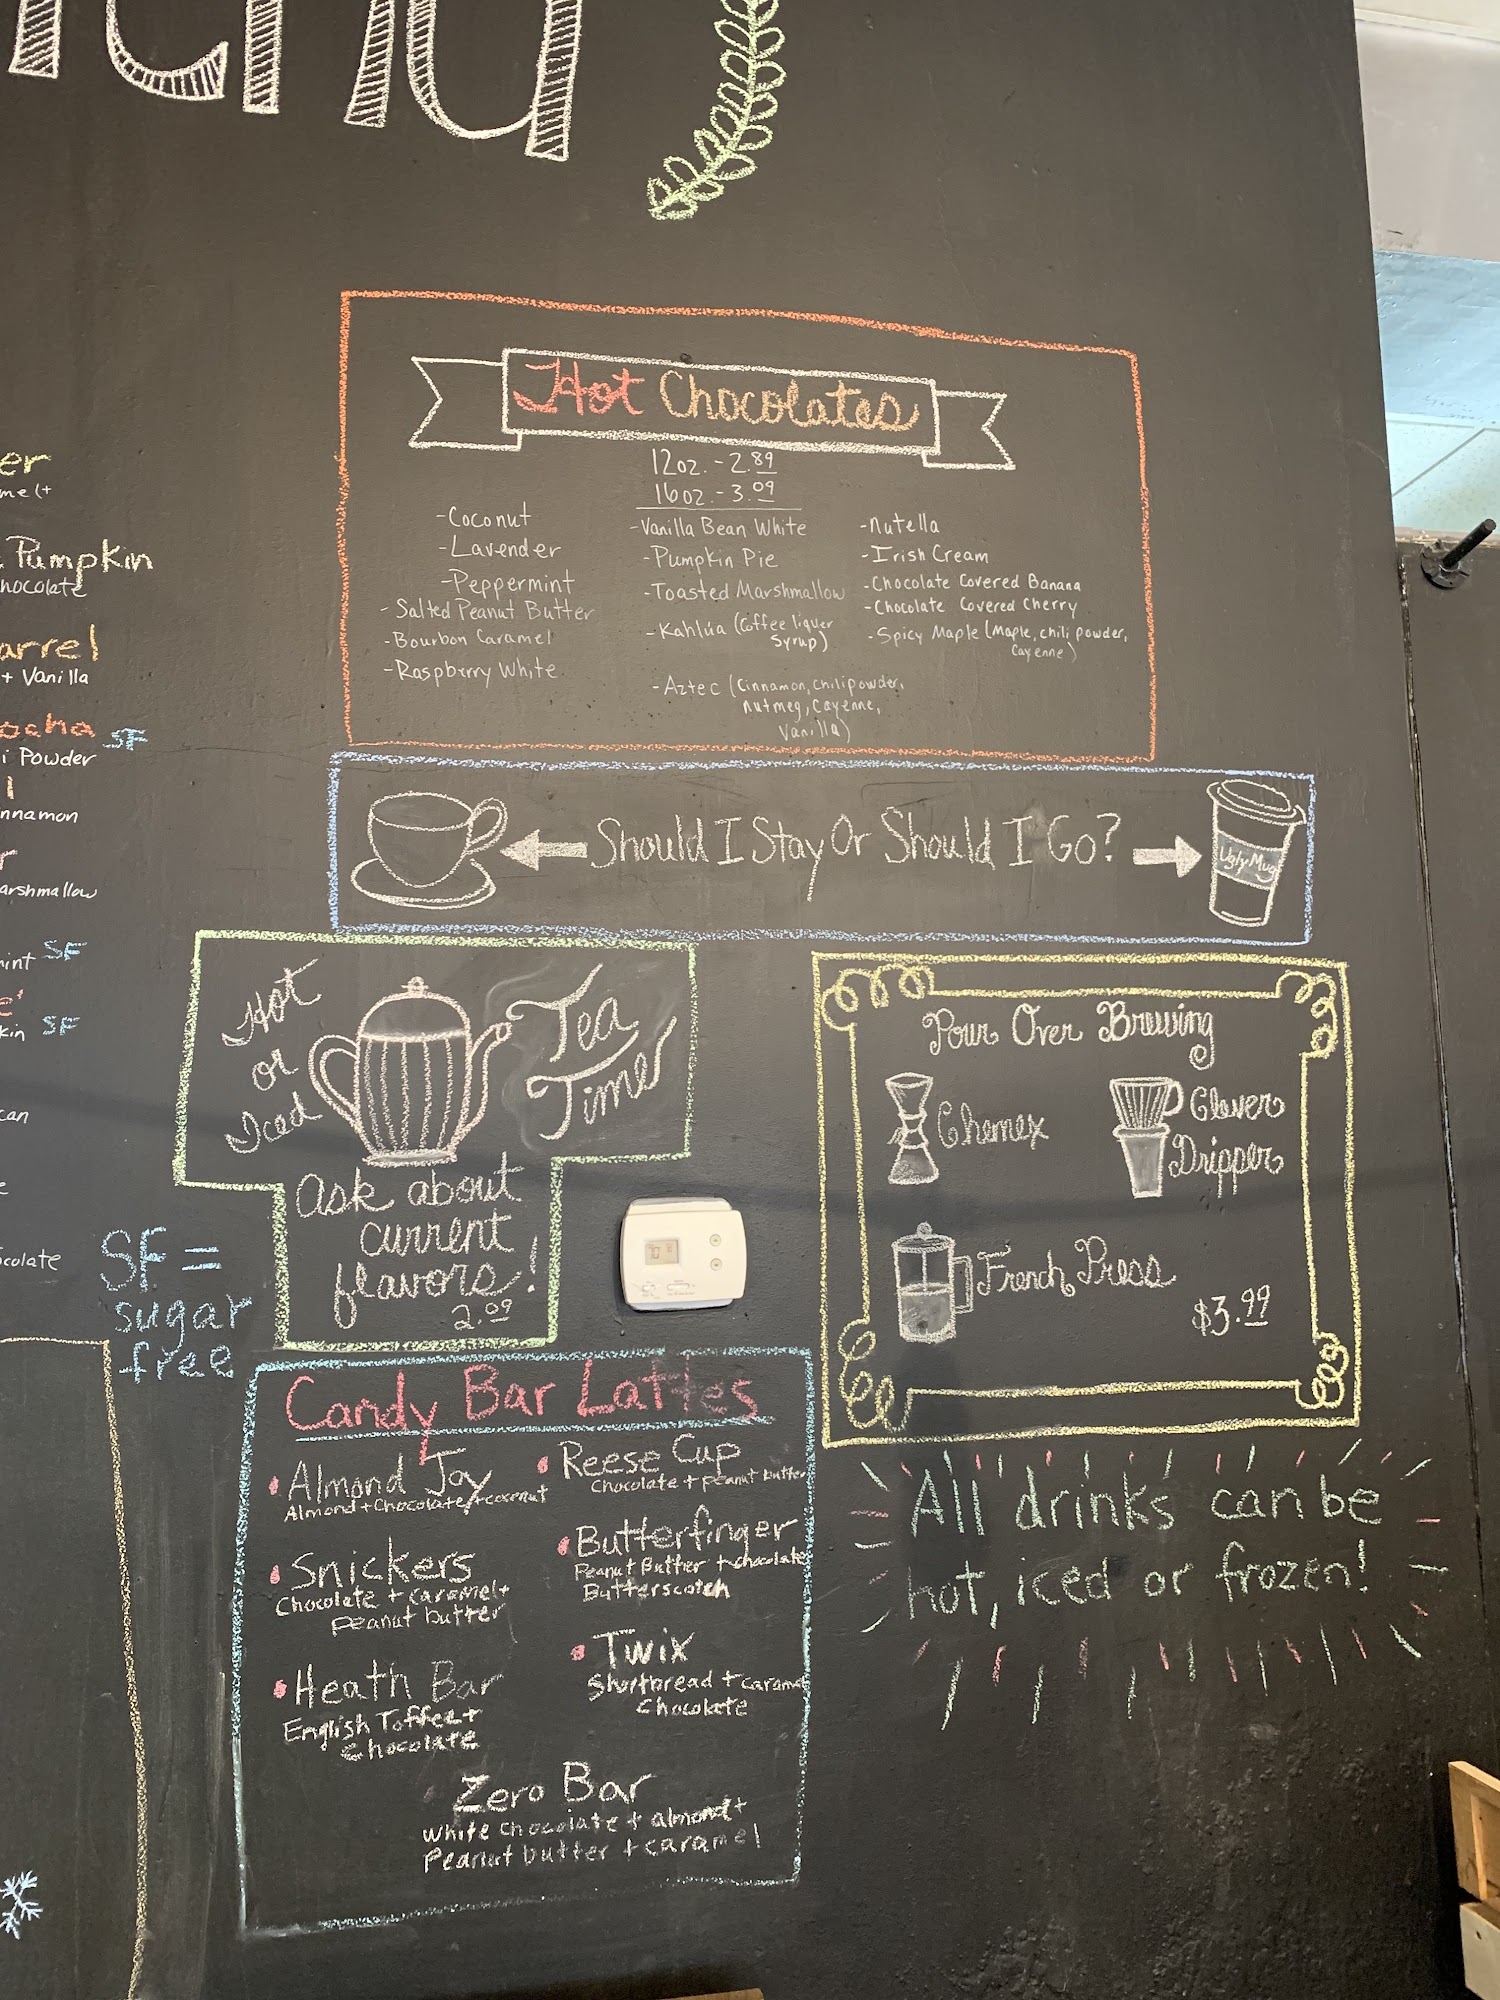 Hot Chocolates
12oz. - 2.89
16oz. - 3.09
-Coconut
-Lavender
-Peppermint
- Salted Peanut Butter
-Bourbon Caramel
-Raspberry White
-Vanilla Bean White
-Pumpkin Pie
-Toasted Marshmallow
-Kahlúa (Coffee liquer
Syrup)
-Aztec (Cinnamon, chili powder,
nutmeg, Cayenne,
Vanilla)
-Nutella
-Irish Cream
-Chocolate Covered Banana
-Chocolate Covered Cherry
-Spicy Maple (Maple, chili powder,
Cayenne)
Should I Stay Or Should I Go?
Ugly Mug
Hot
or
Iced
Tea
Time
Ask about
current
flavors!
2.09
Pour Over Brewing
Chemex
Clever
Dripper
French Press
$3.99
Candy Bar Lattes
Almond Joy
Almond + Chocolate + coconut
Snickers
Chocolate + caramel +
Peanut butter
Heath Bar
English Toffee +
Chocolate
Reese Cup
Chocolate + peanut butter
Butterfinger
Peanut Butter + chocolate
Butterscotch
Twix
Shortbread + caramel
Chocolate
Zero Bar
White chocolate + almond +
Peanut butter + caramel
All drinks can be
hot, iced or frozen!
Pumpkin
+ Vanilla
SF
Powder
SF
SF
SF =
sugar
free